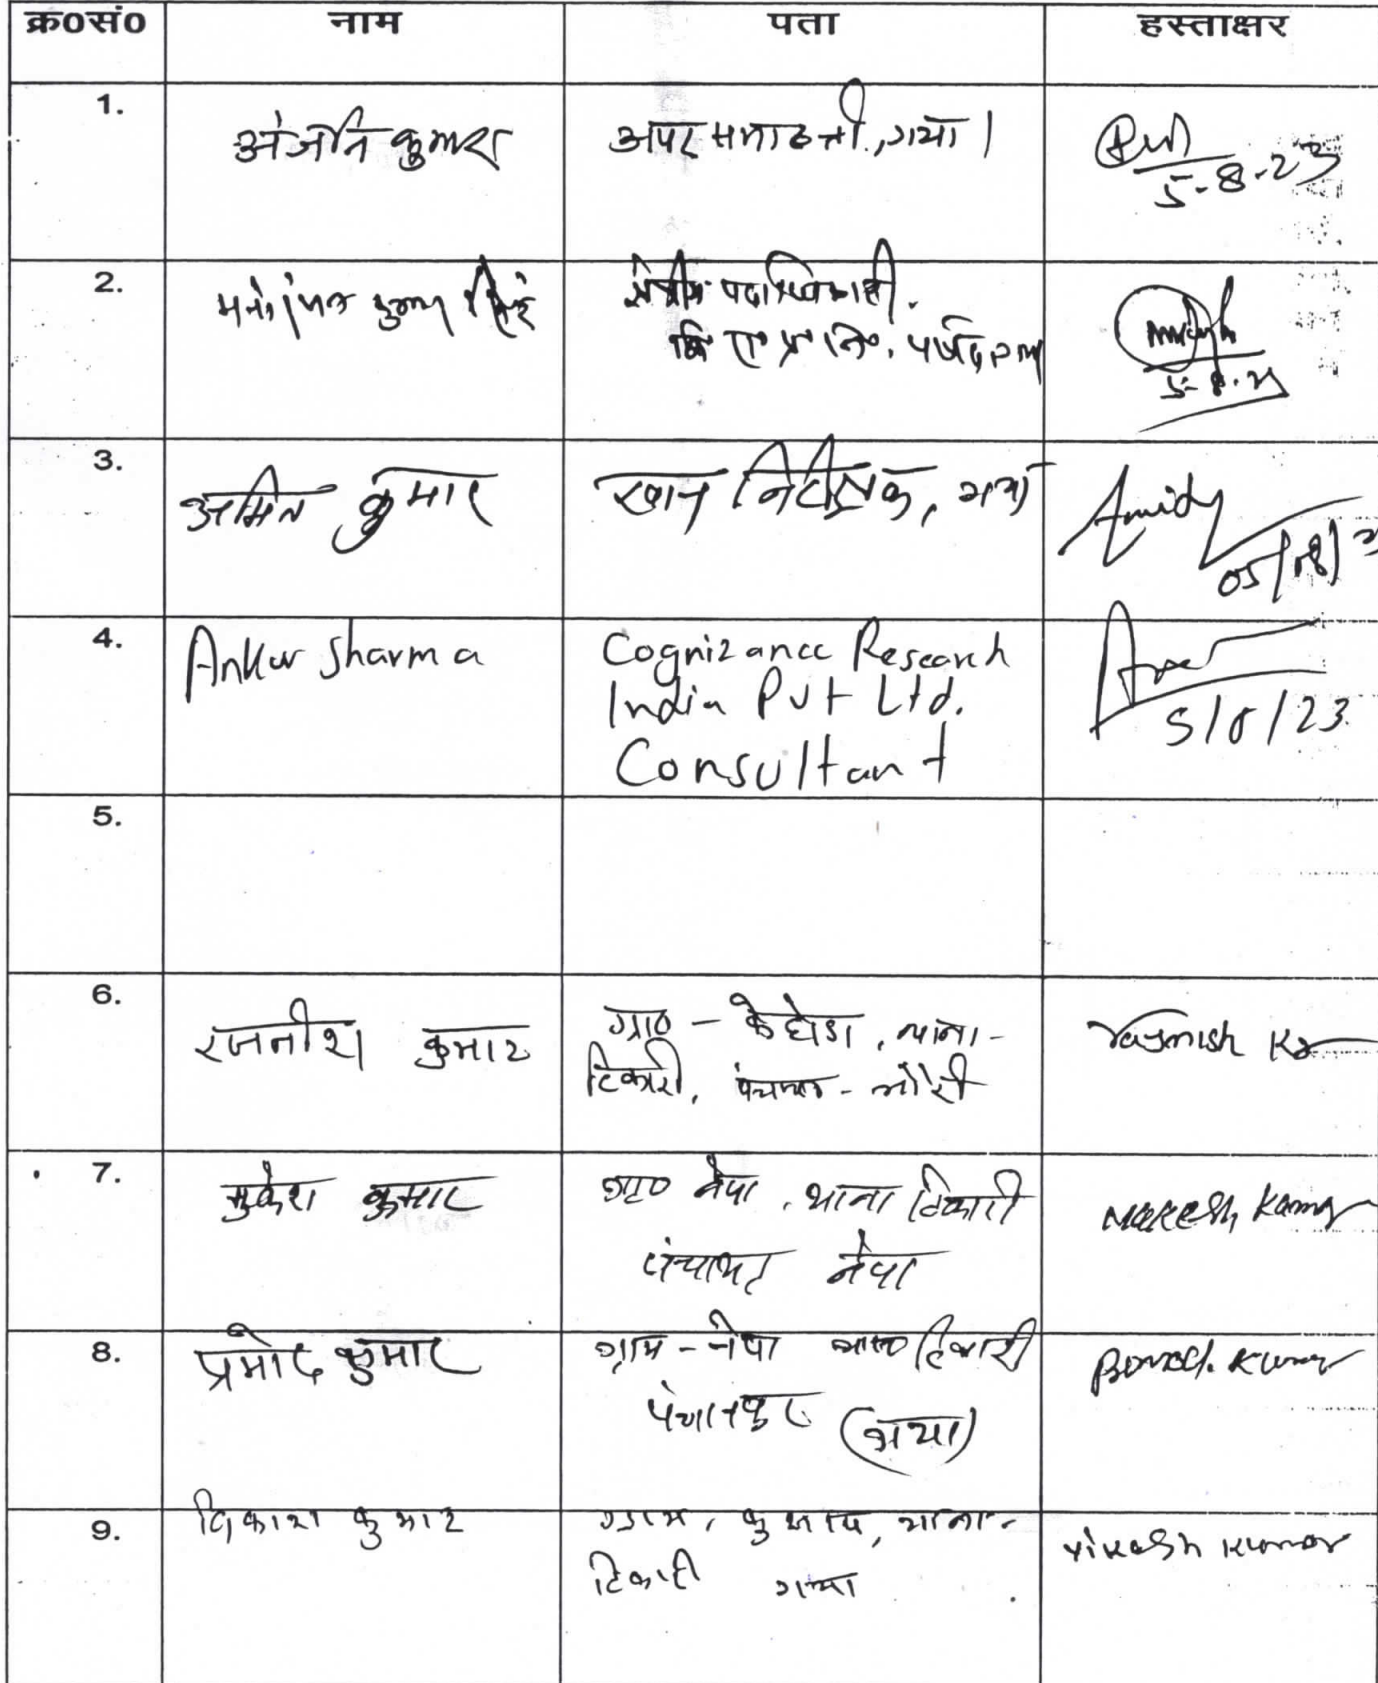 क्र०सं० नाम पता हस्ताक्षर
1. अंजनि कुमार अपर समाहर्त्ता, गया।
5-8-23
2. क्षेत्रीय पदाधिकारी.
5-8-23
3. अमित कुमार खान निरीक्षक, गया
05/08/2
4. Ankur Sharma Cognizance Research
India Pvt Ltd.
Consultant
5/8/23
5.
6. रजनीश कुमार ग्रा० - थाना-
टिकारी, पंचायत- Rajnish Kr
7. मुकेश कुमार ग्रा० नेपा, थाना टिकारी
पंचायत नेपा Mukesh Kumar
8. प्रमोद कुमार ग्राम - नेपा टिकारी
(गया) Kumar
9. विकाश कुमार ग्राम, थाना-
टिकारी गया Vikash Kumar